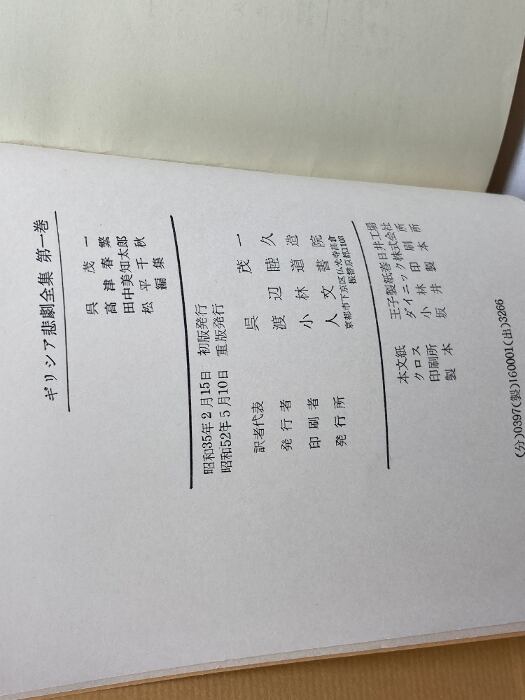 ギリシア悲劇全集 第一巻
呉茂一
高津春繁
田中美知太郎
松平千秋
編集
昭和35年2月15日 初版発行
昭和52年5月10日 重版発行
訳者代表 呉茂一
発行者 渡辺睦久
印刷者 小林道造
発行所 人文書院
京都市下京区仏光寺高倉
振替京都1103
本文紙 王子製紙春日井工場
クロス ダイニック株式会社
印刷所 小林印刷所
製本 坂井製本所
(分)0397(製)160001(出)3266